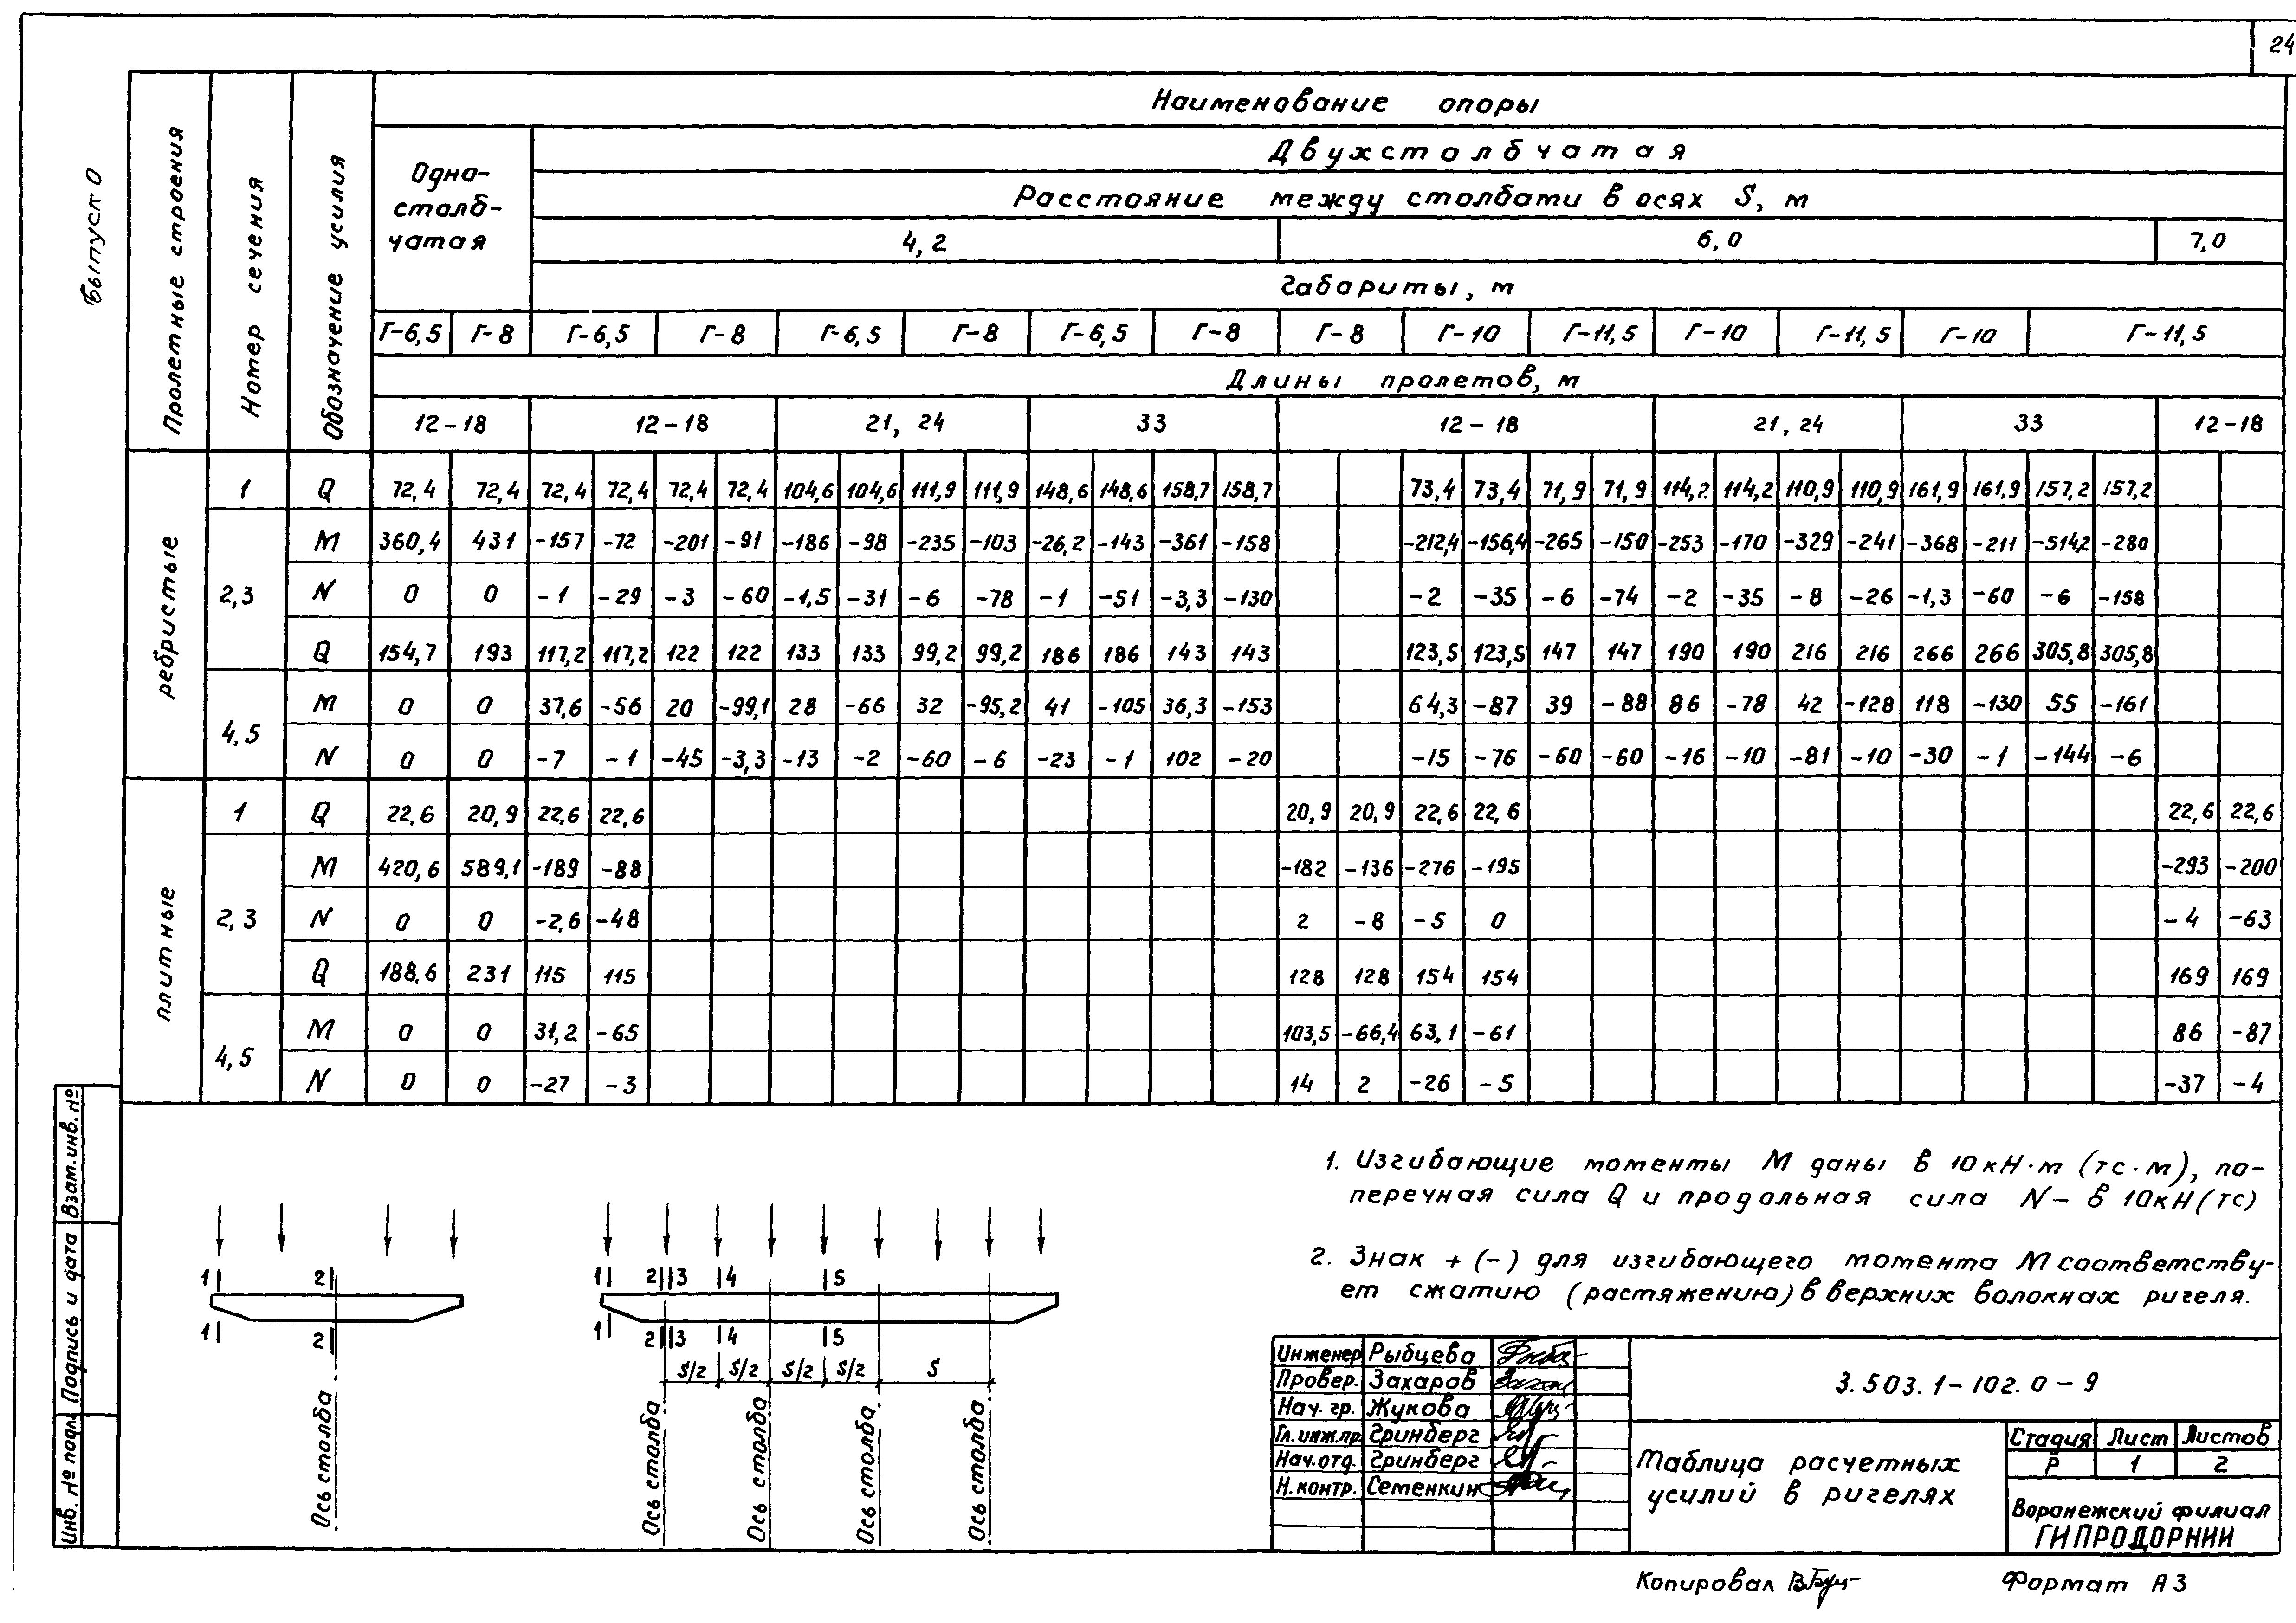 24
Выпуск 0
Пролетные строения
Номер сечения
Обозначение усилия
Наименование опоры
Одно-
столб-
чатая
Двухстолбчатая
Расстояние между столбами в осях S, м
4,2 6,0 7,0
Габариты, м
Г-6,5 Г-8 Г-6,5 Г-8 Г-6,5 Г-8 Г-6,5 Г-8 Г-8 Г-10 Г-11,5 Г-10 Г-11,5 Г-10 Г-11,5
Длины пролетов, м
12-18 12-18 21, 24 33 12-18 21, 24 33 12-18
ребристые
1 Q 72,4 72,4 72,4 72,4 72,4 72,4 104,6 104,6 111,9 111,9 148,6 148,6 158,7 158,7 73,4 73,4 71,9 71,9 114,2 114,2 110,9 110,9 161,9 161,9 157,2 157,2
2,3 M 360,4 431 -157 -72 -201 -91 -186 -98 -235 -103 -26,2 -143 -361 -158 -212,4 -156,4 -265 -150 -253 -170 -329 -241 -368 -211 -514,2 -280
N 0 0 -1 -29 -3 -60 -1,5 -31 -6 -78 -1 -51 -3,3 -130 -2 -35 -6 -74 -2 -35 -8 -26 -1,3 -60 -6 -158
Q 154,7 193 117,2 117,2 122 122 133 133 99,2 99,2 186 186 143 143 123,5 123,5 147 147 190 190 216 216 266 266 305,8 305,8
4,5 M 0 0 37,6 -56 20 -99,1 28 -66 32 -95,2 41 -105 36,3 -153 64,3 -87 39 -88 86 -78 42 -128 118 -130 55 -161
N 0 0 -7 -1 -45 -3,3 -13 -2 -60 -6 -23 -1 102 -20 -15 -76 -60 -60 -16 -10 -81 -10 -30 -1 -144 -6
плитные
1 Q 22,6 20,9 22,6 22,6 20,9 20,9 22,6 22,6 22,6 22,6
2,3 M 420,6 589,1 -189 -88 -182 -136 -276 -195 -293 -200
N 0 0 -2,6 -48 2 -8 -5 0 -4 -63
Q 188,6 231 115 115 128 128 154 154 169 169
4,5 M 0 0 31,2 -65 103,5 -66,4 63,1 -61 86 -87
N 0 0 -27 -3 14 2 -26 -5 -37 -4
1 2
1 2
Ось столба
1 2 3 4 5
1 2 3 4 5
S/2 S/2 S/2 S/2 S
Ось столба
Ось столба
Ось столба
Ось столба
1. Изгибающие моменты M даны в 10кН·м (тс·м), по-
перечная сила Q и продольная сила N - в 10кН(тс)
2. Знак + (-) для изгибающего момента M соответству-
ет сжатию (растяжению) в верхних волокнах ригеля.
Взам.инв.№
Подпись и дата
Инв. № подл.
Инженер Рыбцева
Провер. Захаров
Нач. гр. Жукова
Гл. инж.пр. Гринберг
Нач.отд. Гринберг
Н.контр. Семенкин
3.503.1-102.0-9
Таблица расчетных
усилий в ригелях
Стадия Лист Листов
Р 1 2
Воронежский филиал
ГИПРОДОРНИИ
Копировал
Формат А3